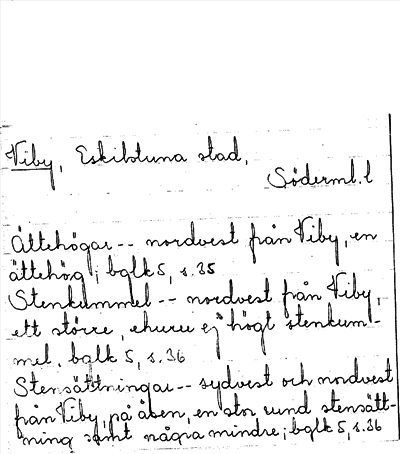 Viby, Eskilstuna stad,
Söderml.l
Ättehögar -- nordvest från Viby, en
ättehög; bglk 5, s. 35
Stenkummel -- nordvest från Viby,
ett större, ehuru ej högt stenkum-
mel. bglk 5, s. 36
Stensättningar -- sydvest och nordvest
från Viby, på åsen, en stor rund stensätt-
ning samt några mindre; bglk 5, s. 36